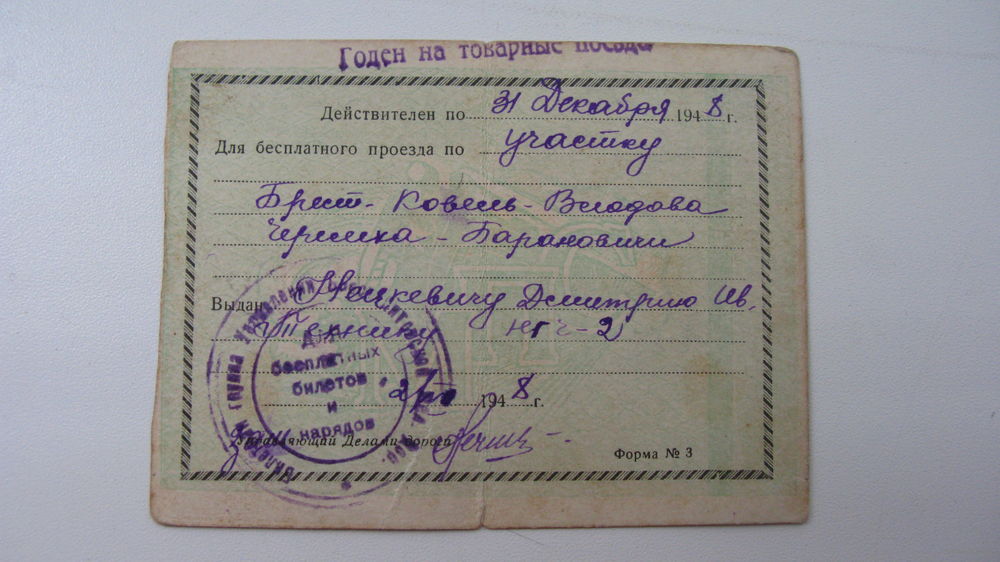 Годен на товарные поезда
Действителен по 31 Декабря 1948 г.
Для бесплатного проезда по участку
Брест-Ковель-Влодава
Черемха-Барановичи
Выдан Дмитрию Ив.
Технику НГЧ-2
1948 г.
Управляющий Делами дороги
Форма № 3
Для
бесплатных
билетов
и
нарядов